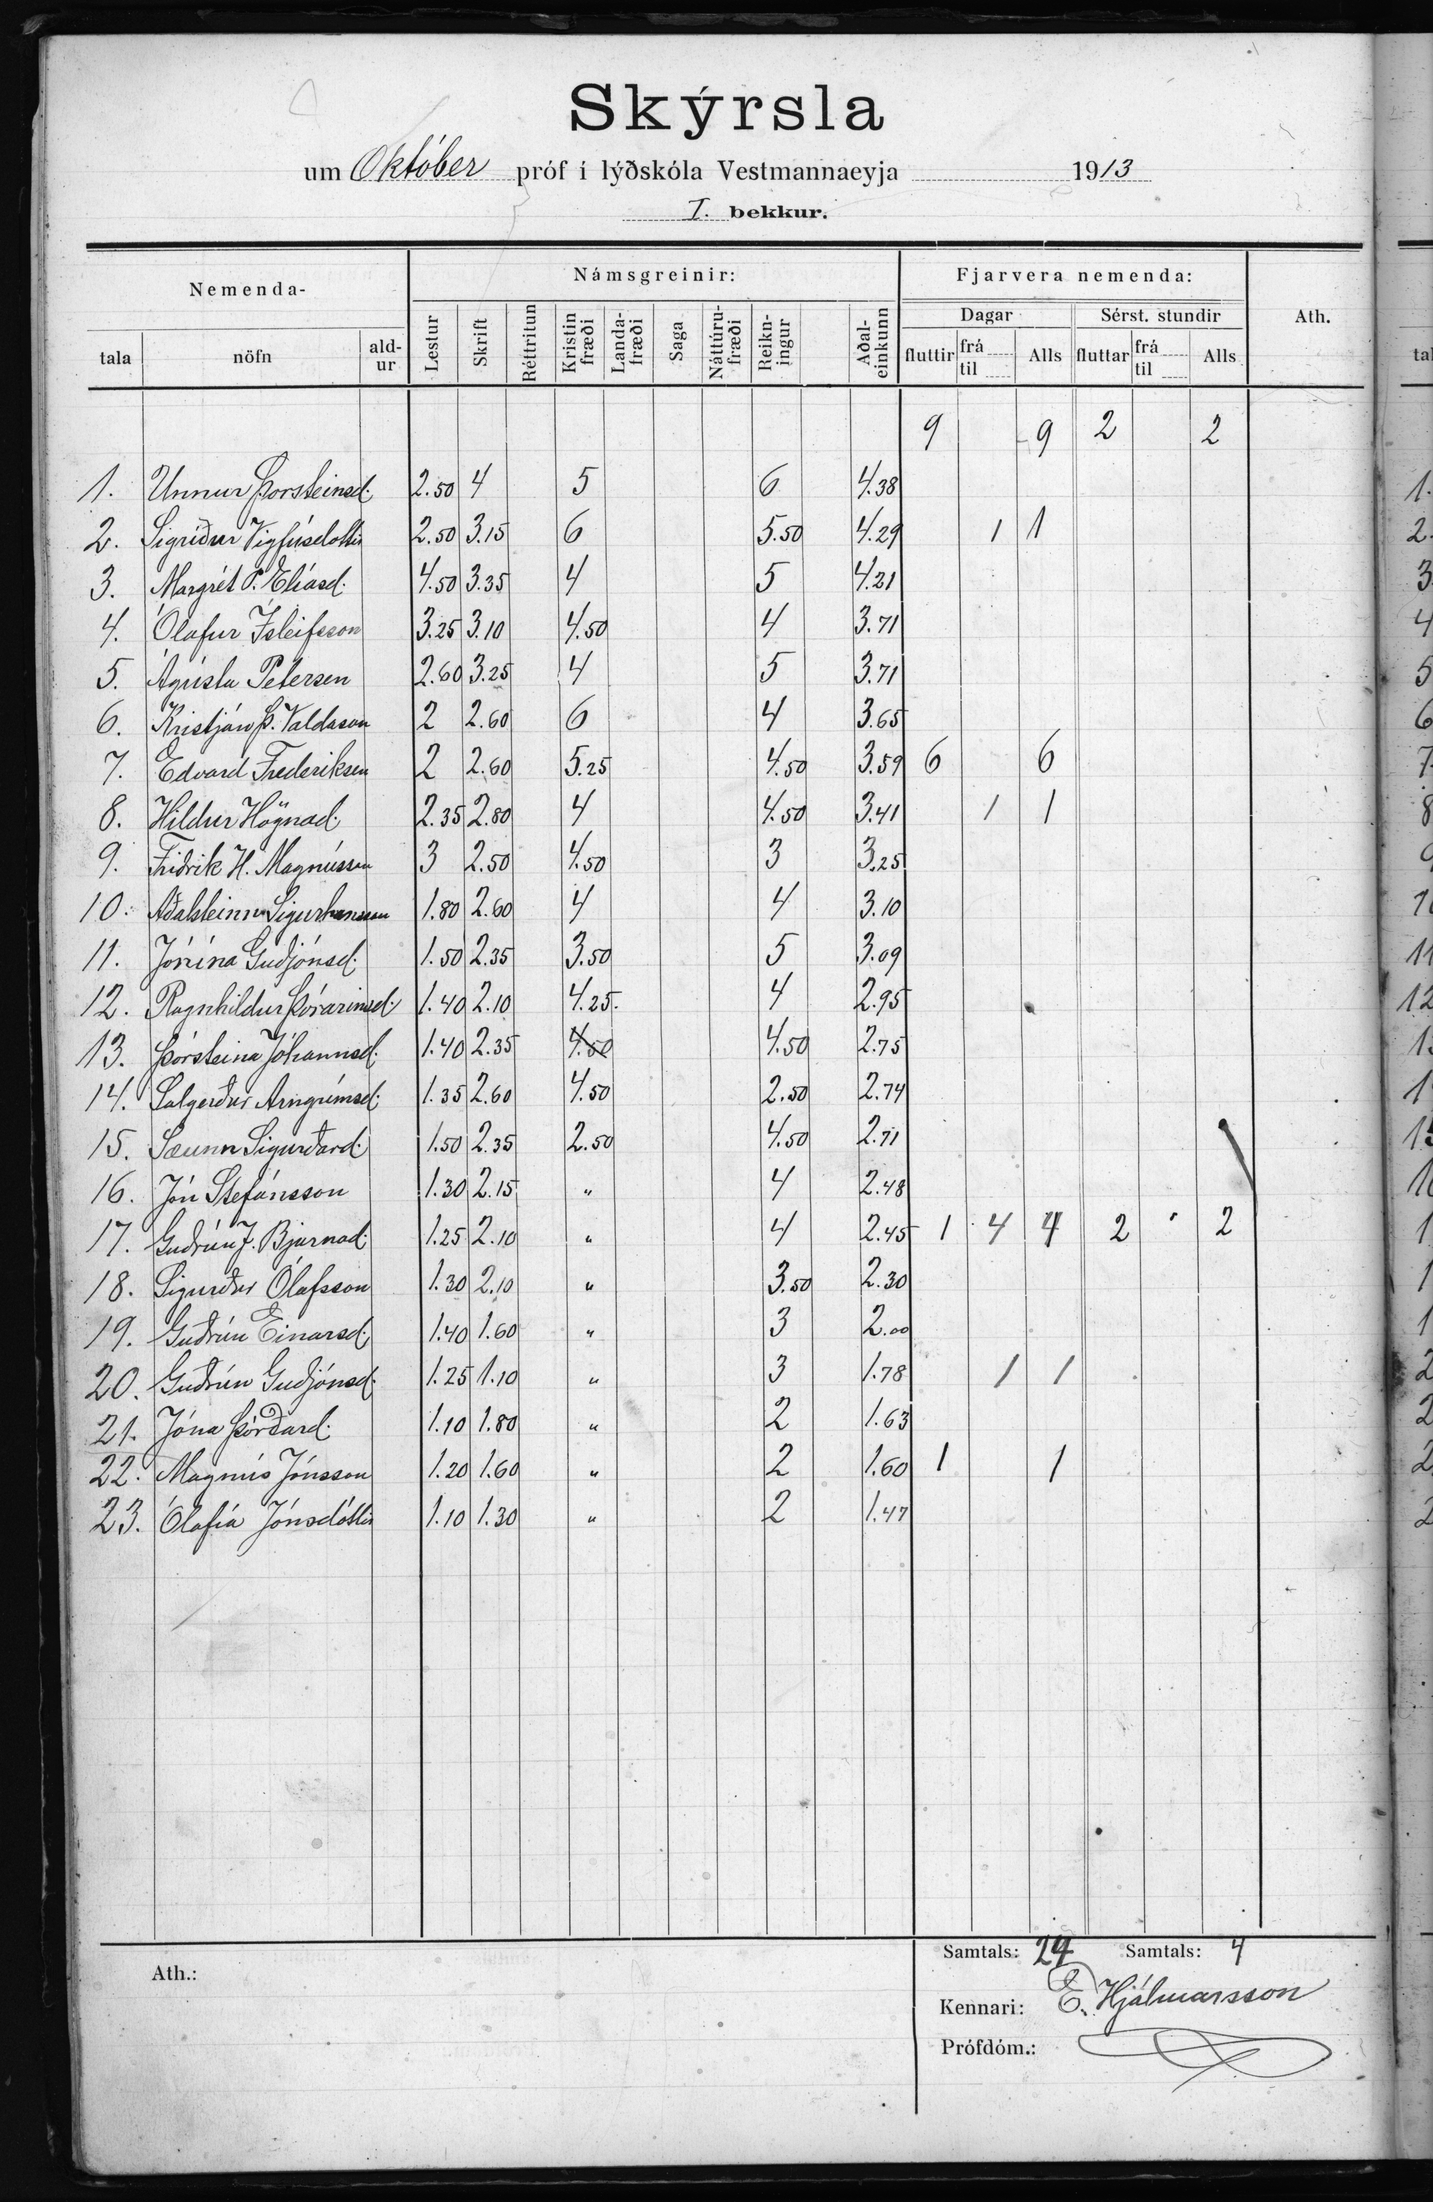 Skýrsla
um Október próf í lýðskóla Vestmannaeyja 1913
I. bekkur.
Nemenda- Námsgreinir: Fjarvera nemenda: Ath.
Dagar Sérst. stundir
tala nöfn ald-ur Lestur Skrift Réttritun Kristin fræði Landa-fræði Saga Náttúru-fræði Reikn-ingur Aðal-einkunn fluttir frá til Alls fluttar frá til Alls
9 9 2 2
1. Unnur Þorsteinsd. 2.50 4 5 6 4.38
2. Sigríður Vigfúsdóttir 2.50 3.15 6 5.50 4.29 1 1
3. Margrét P. Elíasd. 4.50 3.35 4 5 4.21
4. Ólafur Ísleifsson 3.25 3.10 4.50 4 3.71
5. Ágústa Petersen 2.60 3.25 4 5 3.71
6. Kristján Þ. Valdason 2 2.60 6 4 3.65
7. Edvard Frederiksen 2 2.60 5.25 4.50 3.59 6 6
8. Hildur Högnad. 2.35 2.80 4 4.50 3.41 1 1
9. Friðrik H. Magnússon 3 2.50 4.50 3 3.25
10. Aðalsteinn Sigurhansson 1.80 2.60 4 4 3.10
11. Jónína Guðjónsd. 1.50 2.35 3.50 5 3.09
12. Ragnhildur Þórarinsd. 1.40 2.10 4.25. 4 2.95
13. Þórsteina Jóhannsd. 1.40 2.35 4.50 2.75
14. Salgerður Arngrímsd. 1.35 2.60 4.50 2.50 2.74
15. Sæunn Sigurðard. 1.50 2.35 2.50 4.50 2.71
16. Jón Stefánsson 1.30 2.15 " 4 2.48
17. Guðrún J. Bjarnad. 1.25 2.10 " 4 2.45 1 4 4 2 2
18. Sigurður Ólafsson 1.30 2.10 " 3.50 2.30
19. Guðrún Einarsd. 1.40 1.60 " 3 2.00
20. Guðrún Guðjónsd. 1.25 1.10 " 3 1.78 1 1
21. Jóna Þórðard. 1.10 1.80 " 2 1.63
22. Magnús Jónsson 1.20 1.60 " 2 1.60 1 1
23. Ólafía Jónsdóttir 1.10 1.30 " 2 1.47
Samtals: 24 Samtals: 4
Ath.:
Kennari: E. Hjálmarsson
Prófdóm.: